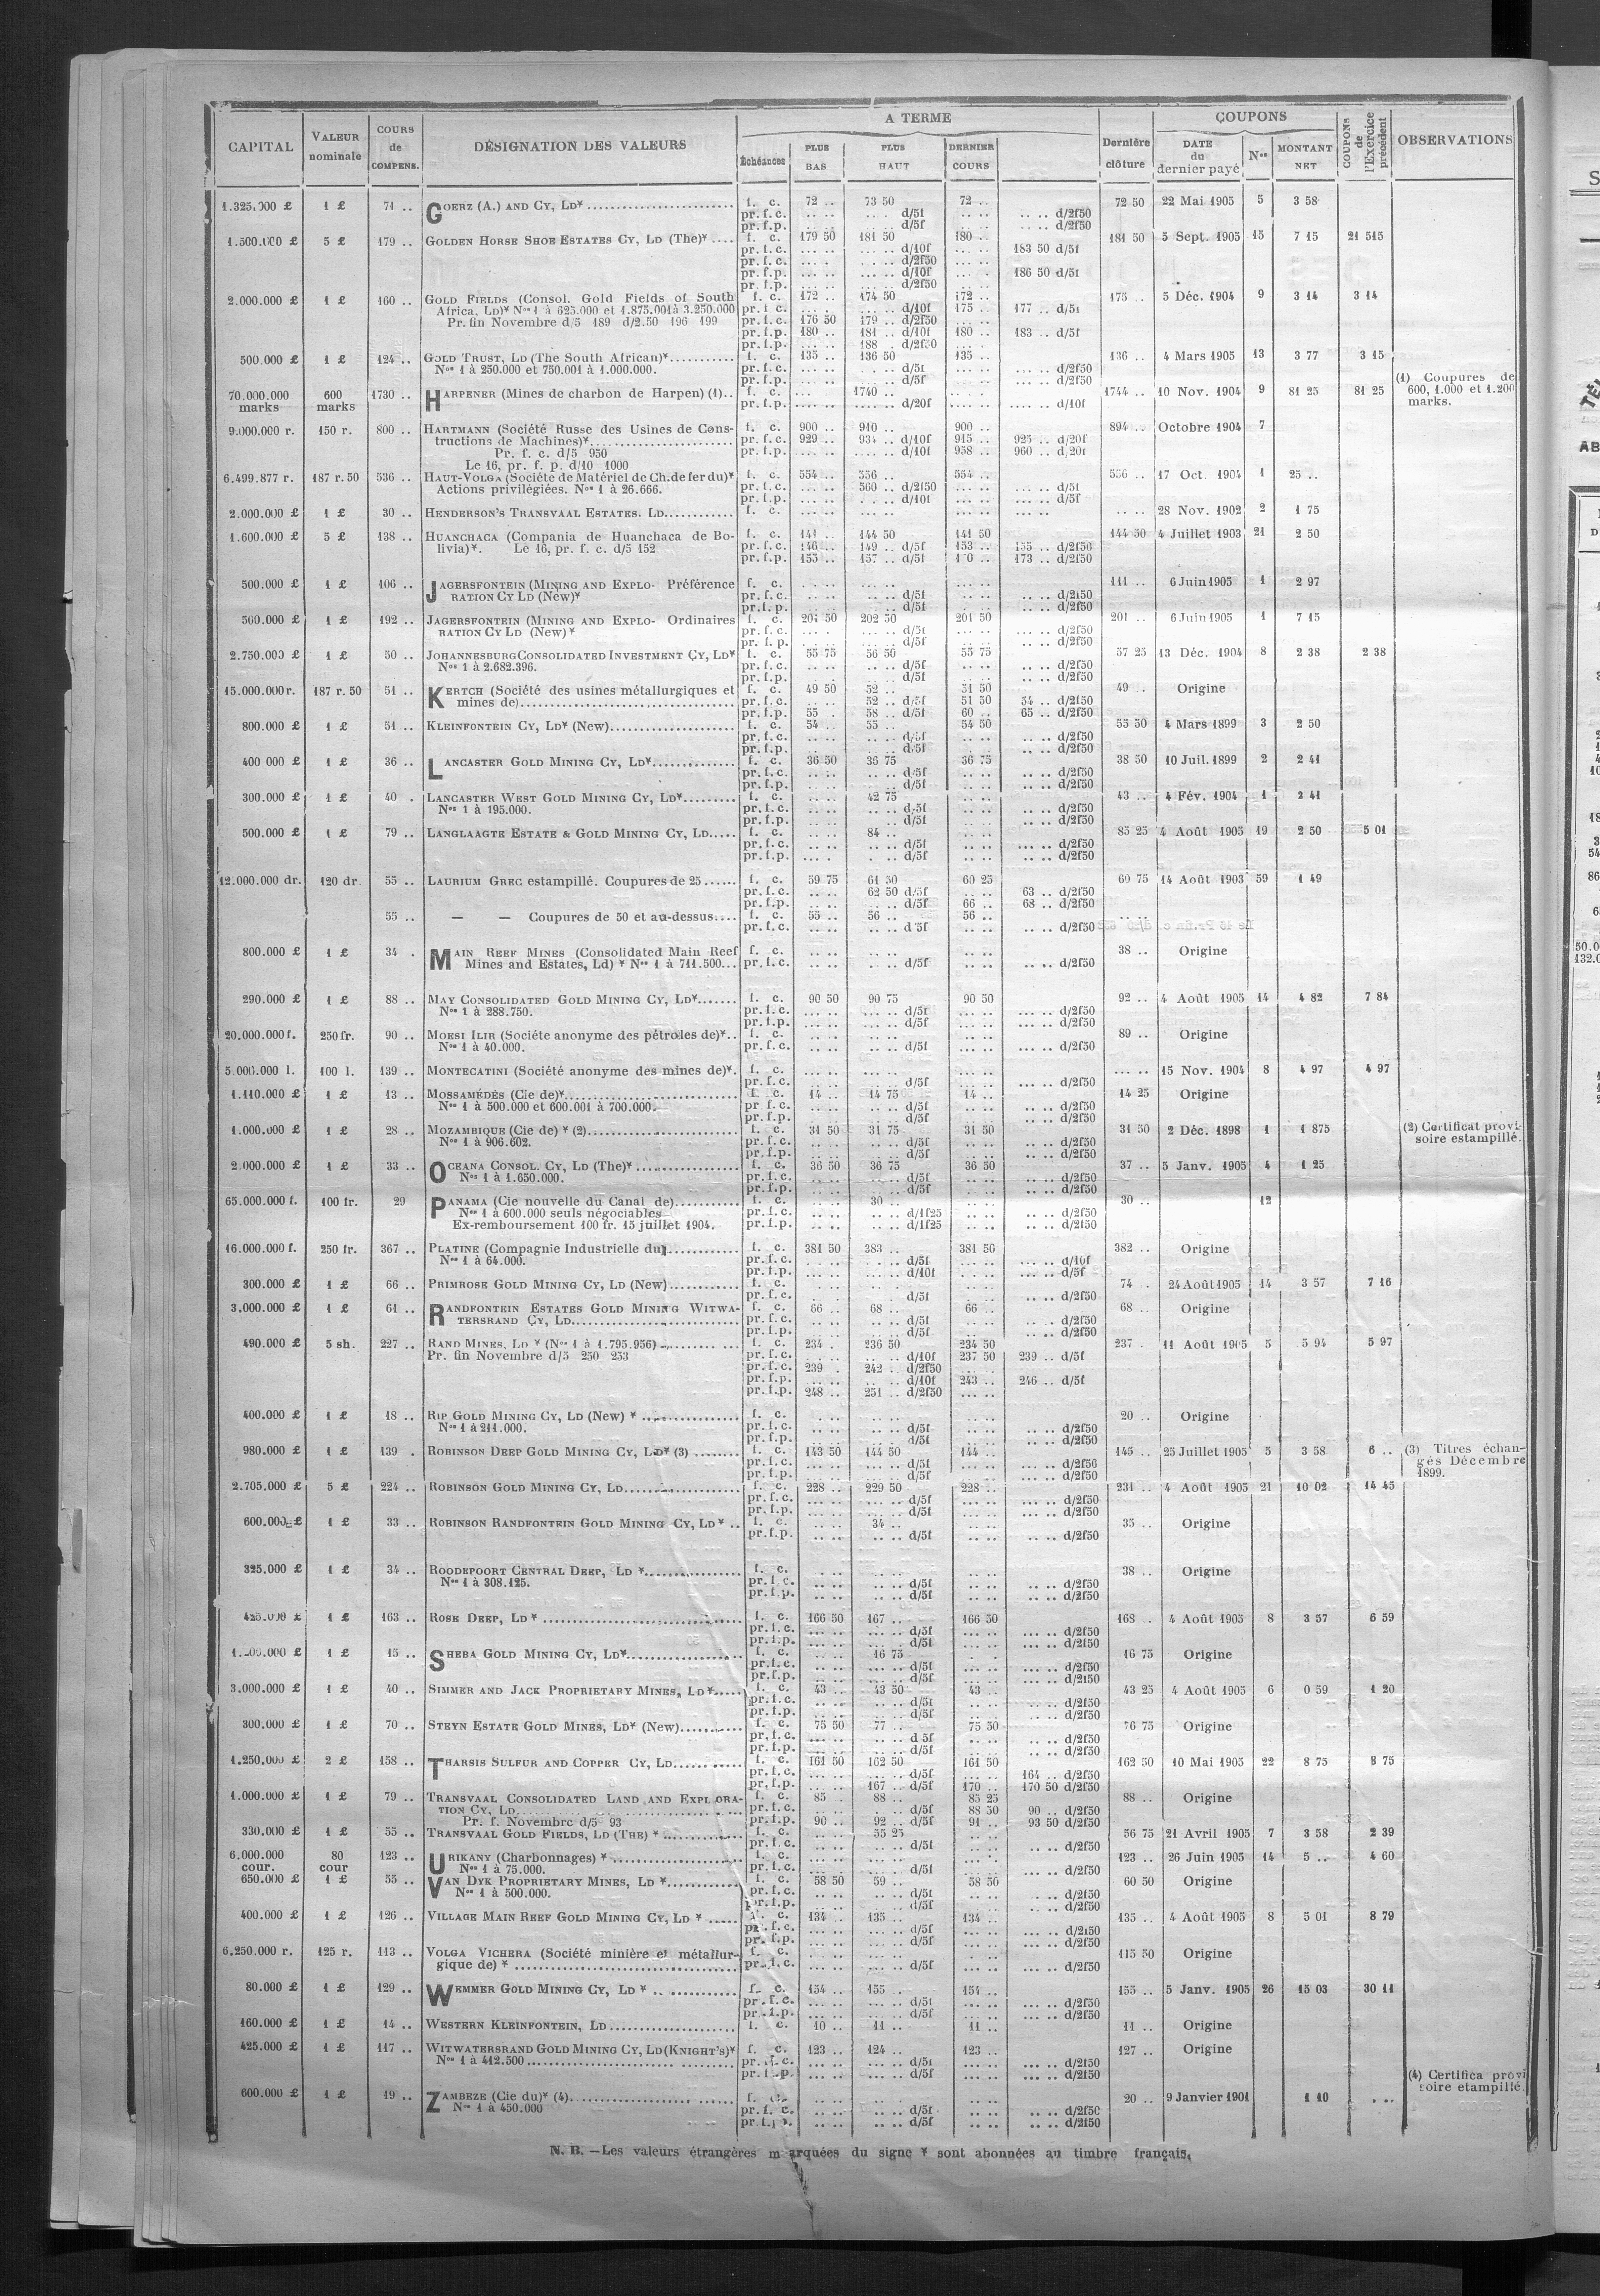 CAPITAL VALEUR nominale COURS de COMPENS. DÉSIGNATION DES VALEURS A TERME Échéances PLUS BAS PLUS HAUT DERNIER COURS Dernière clôture COUPONS DATE du dernier payé Nos MONTANT NET COUPONS de l'Exercice précédent OBSERVATIONS
1 £ 71 .. GOERZ (A.) AND CY, LD¥ f. c. 72 .. 73 50 72 .. 72 50 22 Mai 1905 5 3 58
pr. f. c. .. .. .. .. d/5f .. .. .. .. d/2f50
pr. f. p. .. .. d/5f .. .. .. .. d/2f50
5 £ 179 .. GOLDEN HORSE SHOE ESTATES CY, LD (The)¥ .... f. c. 179 50 181 50 180 .. 181 50 5 Sept. 1905 15 7 15 21 515
pr. f. c. .. .. d/10f 183 50 d/5f
pr. f. c. .. .. d/2f50
pr. f.p. .. .. d/10f 186 50 d/5f
pr. f.p. .. .. d/2f50
2.000.000 £ 1 £ 160 .. GOLD FIELDS (Consol. Gold Fields of South f. c. 172 .. 174 50 172 .. 175 .. 5 Déc. 1904 9 3 14 3 14
Africa, LD)¥ Nos 1 à 625.000 et 1.875.001 à 3.250.000 pr. f. c. .. .. d/10f 175 .. 177 .. d/5f
Pr. fin Novembre d/5 189 d/2.50 196 199 pr. f. c. 176 50 179 .. d/2f50
pr. f.p. 180 .. 181 .. d/10f 180 .. 183 .. d/5f
pr. f.p. 188 .. d/2f50
500.000 £ 1 £ 124 .. GOLD TRUST, LD (The South African)¥ f. c. 135 .. 136 50 135 .. 136 .. 4 Mars 1905 13 3 77 3 15
Nos 1 à 250.000 et 750.001 à 1.000.000. pr. f.c. d/5f d/2f50
pr. f.p. d/5f d/2f50
70.000.000 marks 600 marks 1730 .. HARPENER (Mines de charbon de Harpen) (1).. f. c. 1740 .. 1744 .. 10 Nov. 1904 9 81 25 81 25 (1) Coupures de 600, 1.000 et 1.200 marks.
pr. f.p. d/20f d/10f
9.000.000 r. 150 r. 800 .. HARTMANN (Société Russe des Usines de Cons- f. c. 900 .. 910 .. 900 .. 894 .. Octobre 1904 7
tructions de Machines)¥ pr. f. c. 929 .. 934 .. d/10f 915 .. 925 .. d/20f
Pr. f. c. d/5 950 pr. f.p. d/10f 958 .. 960 .. d/20f
Le 16, pr. f. p. d/10 1000
6.499.877 r. 187 r. 50 536 .. HAUT-VOLGA (Sociéte de Matériel de Ch. de fer du)¥ f. c. 554 .. 556 .. 554 .. 556 .. 17 Oct. 1904 1 25 ..
Actions privilégiées. Nos 1 à 26.666. pr. f.c. 560 .. d/2f50 d/5f
pr. f.p. d/10f d/5f
2.000.000 £ 1 £ 30 .. HENDERSON'S TRANSVAAL ESTATES. LD f. c. 28 Nov. 1902 2 1 75
1.600.000 £ 5 £ 138 .. HUANCHACA (Compania de Huanchaca de Bo- f. c. 141 .. 144 50 141 50 144 50 4 Juillet 1903 21 2 50
livia)¥. Le 16, pr. f. c. d/5 152 pr. f.c. 146 .. 149 .. d/5f 153 .. 155 .. d/2f50
pr. f.p. 155 .. 157 .. d/5f 173 .. d/2f50
500.000 £ 1 £ 106 .. JAGERSFONTEIN (MINING AND EXPLO- Préférence f. c. 111 .. 6 Juin 1905 1 2 97
RATION CY LD (New)¥ pr. f.c. d/5f d/2f50
pr. f. p. d/5f d/2f50
500.000 £ 1 £ 192 .. JAGERSFONTEIN (MINING AND EXPLO- Ordinaires f. c. 201 50 202 50 201 50 201 .. 6 Juin 1905 1 7 15
RATION CY LD (New)¥ pr. f. c. d/5f d/2f50
pr. f. p. d/5f d/2f50
2.750.000 £ 1 £ 50 .. JOHANNESBURG CONSOLIDATED INVESTMENT CY, LD¥ f. c. 55 75 56 50 55 75 57 25 13 Déc. 1904 8 2 38 2 38
Nos 1 à 2.682.396. pr. f.c. d/5f d/2f50
pr. f.p. d/5f d/2f50
15.000.000 r. 187 r. 50 51 .. KERTCH (Société des usines métallurgiques et f. c. 49 50 52 .. 51 50 49 .. Origine
mines de) pr. f.c. 52 .. d/5f 51 50 54 .. d/2f50
pr. f.p. 55 . 58 .. d/5f 60 .. 65 .. d/2f50
800.000 £ 1 £ 51 .. KLEINFONTEIN CY, LD¥ (New) f. c. 54 .. 55 .. 54 50 55 50 4 Mars 1899 3 2 50
pr. f.c. d/5f d/2f50
pr. f.p. d/5f d/2f50
400 000 £ 1 £ 36 .. LANCASTER GOLD MINING CY, LD¥ f. c. 36 50 36 75 36 75 38 50 10 Juil. 1899 2 2 41
pr. f.c. d/5f d/2f50
pr. f.p. d/5f d/2f50
300.000 £ 1 £ 40 . LANCASTER WEST GOLD MINING CY, LD¥ f. c. 42 75 43 .. 4 Fév. 1904 1 2 41
Nos 1 à 195.000. pr. f.c. d/5f d/2f50
pr. f.p. d/5f d/2f50
500.000 £ 1 £ 79 .. LANGLAAGTE ESTATE & GOLD MINING CY, LD f. c. 84 .. 85 25 4 Août 1905 19 2 50 5 01
pr. f.c. d/5f d/2f50
pr. f.p. d/5f d/2f50
12.000.000 dr. 120 dr. 55 .. LAURIUM GREC estampillé. Coupures de 25 f. c. 59 75 61 50 60 25 60 75 14 Août 1903 59 1 49
pr. f.c. 62 50 d/5f 63 .. d/2f50
pr. f.p. d/5f 66 .. 68 .. d/2f50
55 .. — — Coupures de 50 et au-dessus f. c. 55 .. 56 .. 56 ..
pr. f.c. d/5f d/2f50
800.000 £ 1 £ 34 . MAIN REEF MINES (Consolidated Main Reef f. c. 38 .. Origine
Mines and Estates, Ld) ¥ Nos 1 à 711.500 pr. f.c. d/5f d/2f50
290.000 £ 1 £ 88 .. MAY CONSOLIDATED GOLD MINING CY, LD¥ f. c. 90 50 90 75 90 50 92 .. 4 Août 1905 14 4 82 7 84
Nos 1 à 288.750. pr. f.c. d/5f d/2f50
pr. f.p. d/5f d/2f50
20.000.000 f. 250 fr. 90 .. MOESI ILIR (Sociéte anonyme des pétroles de)¥ f. c. 89 .. Origine
Nos 1 à 40.000. pr. f.c. d/5f d/2f50
5.000.000 l. 100 l. 139 .. MONTECATINI (Société anonyme des mines de)¥. f. c. 15 Nov. 1904 8 4 97 4 97
pr. f.c. d/5f d/2f50
1.110.000 £ 1 £ 13 .. MOSSAMÉDÈS (Cie de)¥ f. c. 14 .. 14 75 14 .. 14 25 Origine
Nos 1 à 500.000 et 600.001 à 700.000. pr. f.c. d/5f d/2f50
pr. f.p. d/5f d/2f50
1.000.000 £ 1 £ 28 .. MOZAMBIQUE (Cie de) ¥ (2) f. c. 31 50 31 75 31 50 31 50 2 Déc. 1898 1 1 875 (2) Certificat provi-
Nos 1 à 906.602. pr. f.c. d/5f d/2f50 soire estampillé.
pr. f.p. d/5f d/2f50
2.000.000 £ 1 £ 33 .. OCEANA CONSOL. CY, LD (The)¥ f. c. 36 50 36 75 36 50 37 .. 5 Janv. 1905 4 1 25
Nos 1 à 1.650.000. pr. f.c. d/5f d/2f50
pr. f.p. d/5f d/2f50
65.000.000 f. 100 fr. 29 PANAMA (Cie nouvelle du Canal de) f. c. 30 .. 30 .. 12
Nos 1 à 600.000 seuls négociables pr. f.c. d/1f25 d/2f50
Ex-remboursement 100 fr. 15 juillet 1904. pr. f.p. d/1f25 d/2f50
16.000.000 f. 250 fr. 367 .. PLATINE (Compagnie Industrielle du) f. c. 381 50 383 .. 381 50 382 .. Origine
Nos 1 à 64.000. pr. f.c. d/5f d/10f
pr. f.p. d/10f d/5f
300.000 £ 1 £ 66 .. PRIMROSE GOLD MINING CY, LD (New) f. c. 74 .. 24 Août 1905 14 3 57 7 16
pr. f.c. d/5f d/2f50
3.000.000 £ 1 £ 61 .. RANDFONTEIN ESTATES GOLD MINING WITWA- f. c. 66 .. 68 .. 66 .. 68 .. Origine
TERSRAND CY, LD pr. f.c. d/5f d/2f50
pr. f.p. d/5f d/2f50
490.000 £ 5 sh. 227 .. RAND MINES, LD ¥ (Nos 1 à 1.795.956) f. c. 234 . 236 50 234 50 237 . 11 Août 1905 5 5 94 5 97
Pr. fin Novembre d/5 250 253 pr. f.c. d/10f 237 50 239 .. d/5f
pr. f.c. 239 242 .. d/2f50
pr. f.p. d/10f 243 .. 246 .. d/5f
pr. f.p. 248 .. 251 .. d/2f50
400.000 £ 1 £ 18 .. RIP GOLD MINING CY, LD (New) ¥ f. c. 20 .. Origine
Nos 1 à 211.000. pr. f.c. d/5f d/2f50
pr. f.p. d/5f d/2f50
980.000 £ 1 £ 139 . ROBINSON DEEP GOLD MINING CY, LD¥ (3) f. c. 143 50 144 50 144 .. 145 .. 25 Juillet 1905 5 3 58 6 .. (3) Titres échan-
pr. f.c. d/5f d/2f50 gés Décembre
pr. f.p. d/5f d/2f50 1899.
2.705.000 £ 5 £ 224 .. ROBINSON GOLD MINING CY, LD f. c. 228 .. 229 50 228 .. 231 .. 4 Août 1905 21 10 02 14 45
pr. f.c. d/5f d/2f50
pr. f.p. d/5f d/2f50
600.000 £ 1 £ 33 .. ROBINSON RANDFONTEIN GOLD MINING CY, LD ¥ .. f. c. 34 .. 35 .. Origine
pr. f.p. d/5f d/2f50
325.000 £ 1 £ 34 .. ROODEPOORT CENTRAL DEEP, LD ¥ f. c. 38 .. Origine
Nos 1 à 308.125. pr. f.c. d/5f d/2f50
pr. f.p. d/5f d/2f50
1 £ 163 .. ROSE DEEP, LD ¥ f. c. 166 50 167 .. 166 50 168 . 4 Août 1905 8 3 57 6 59
pr. f.c. d/5f d/2f50
pr. f.p. d/5f d/2f50
1 £ 15 .. SHEBA GOLD MINING CY, LD¥ f. c. 16 75 16 75 Origine
pr. f.c. d/5f d/2f50
pr. f.p. d/5f d/2f50
3.000.000 £ 1 £ 40 .. SIMMER AND JACK PROPRIETARY MINES, LD¥ f. c. 43 .. 43 50 43 .. 43 25 4 Août 1905 6 0 59 1 20
pr. f.c. d/5f d/2f50
pr. f.p. d/5f d/2f50
300.000 £ 1 £ 70 .. STEYN ESTATE GOLD MINES, LD¥ (New) f. c. 75 50 77 .. 75 50 76 75 Origine
pr. f.c. d 5f d/2f50
pr. f.p. d/5f d/2f50
1.250.000 £ 2 £ 158 .. THARSIS SULFUR AND COPPER CY, LD f. c. 161 50 162 50 161 50 162 50 10 Mai 1905 22 8 75 8 75
pr. f.c. d/5f 164 .. d/2f50
pr. f.p. 167 .. d/5f 170 .. 170 50 d/2f50
1.000.000 £ 1 £ 79 .. TRANSVAAL CONSOLIDATED LAND AND EXPLORA- f. c. 85 . 88 .. 85 25 88 .. Origine
TION CY, LD pr. f.c. d/5f 88 50 90 .. d/2f50
Pr. f. Novembre d/5 93 pr. f.p. 90 .. 92 .. d/5f 91 .. 93 50 d/2f50
330.000 £ 1 £ 55 .. TRANSVAAL GOLD FIELDS, LD (THE) ¥ f. c. 55 25 56 75 21 Avril 1905 7 3 58 2 39
pr. f.c. d/5f d/2f50
6.000.000 cour. 80 cour 123 .. URIKANY (Charbonnages) ¥ f. c. 123 .. 26 Juin 1905 14 5 .. 4 60
Nos 1 à 75.000. pr. f.c. d/5f d/2f50
650.000 £ 1 £ 55 .. VAN DYK PROPRIETARY MINES, LD ¥ f. c. 58 50 59 .. 58 50 60 50 Origine
Nos 1 à 500.000. pr. f.c. d/5f d/2f50
pr. f.p. d/5f d/2f50
400.000 £ 1 £ 126 .. VILLAGE MAIN REEF GOLD MINING CY, LD ¥ f. c. 134 .. 135 .. 134 .. 135 .. 4 Août 1905 8 5 01 8 79
pr. f.c. d/5f d/2f50
pr. f.p. d/5f d/2f50
6.250.000 r. 125 r. 113 .. VOLGA VICHERA (Société minière et métallur- f. c. 115 50 Origine
gique de) ¥ pr. f.c. d/5f d/2f50
80.000 £ 1 £ 129 .. WEMMER GOLD MINING CY, LD ¥ f. c. 154 .. 155 .. 154 .. 155 .. 5 Janv. 1905 26 15 03 30 11
pr. f.c. d/5f d/2f50
pr. f.p. d/5f d/2f50
160.000 £ 1 £ 14 .. WESTERN KLEINFONTEIN, LD f. c. 10 .. 11 .. 11 .. 11 .. Origine
425.000 £ 1 £ 117 .. WITWATERSRAND GOLD MINING CY, LD (KNIGHT'S)¥ f. c. 123 .. 124 .. 123 .. 127 .. Origine
Nos 1 à 412.500 pr. f.c. d/5f d/2f50
pr. f.p. d/5f d/2f50 (4) Certifica provi
600.000 £ 1 £ 19 .. ZAMBEZE (Cie du)¥ (4) f. c. 20 .. 9 Janvier 1901 1 10 soire etampillé.
Nos 1 à 450.000 pr. f. c. d/5f d/2f50
pr. f.p. d/5f d/2f50
N. B. — Les valeurs étrangères marquées du signe ¥ sont abonnées au timbre français.